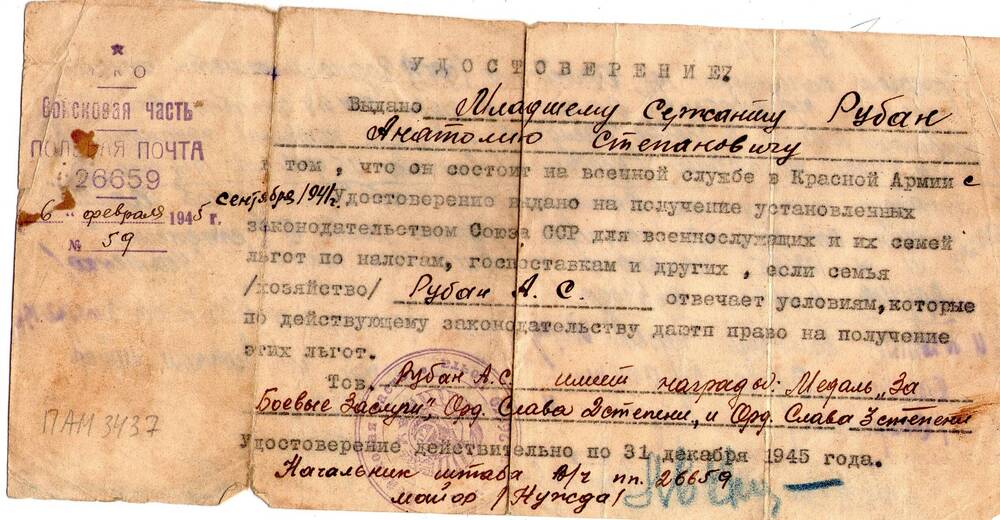 НКО
Войсковая часть
ПОЛЕВАЯ ПОЧТА
26659
6 " февраля 1945 г.
№ 59
УДОСТОВЕРЕНИЕ.
Выдано Младшему сержанту Рубан
Анатолию Степановичу
в том, что он состоит на военной службе в Красной Армии с
сентября 1941 г. Удостоверение выдано на получение установленных
законодательством Союза ССР для военнослужащих и их семей
льгот по налогам, госпоставкам и других, если семья
/хозяйство/ Рубан А. С. отвечает условиям, которые
по действующему законодательству дают право на получение
этих льгот.
Тов. Рубан А.С. имеет награды: Медаль „За
Боевые Заслуги", Орд. Слава 2 степени, и Орд. Слава 3 степени
Удостоверение действительно по 31 декабря 1945 года.
Начальник штаба в/ч пп. 26659
майор /Нужда/
ПАМ 3437